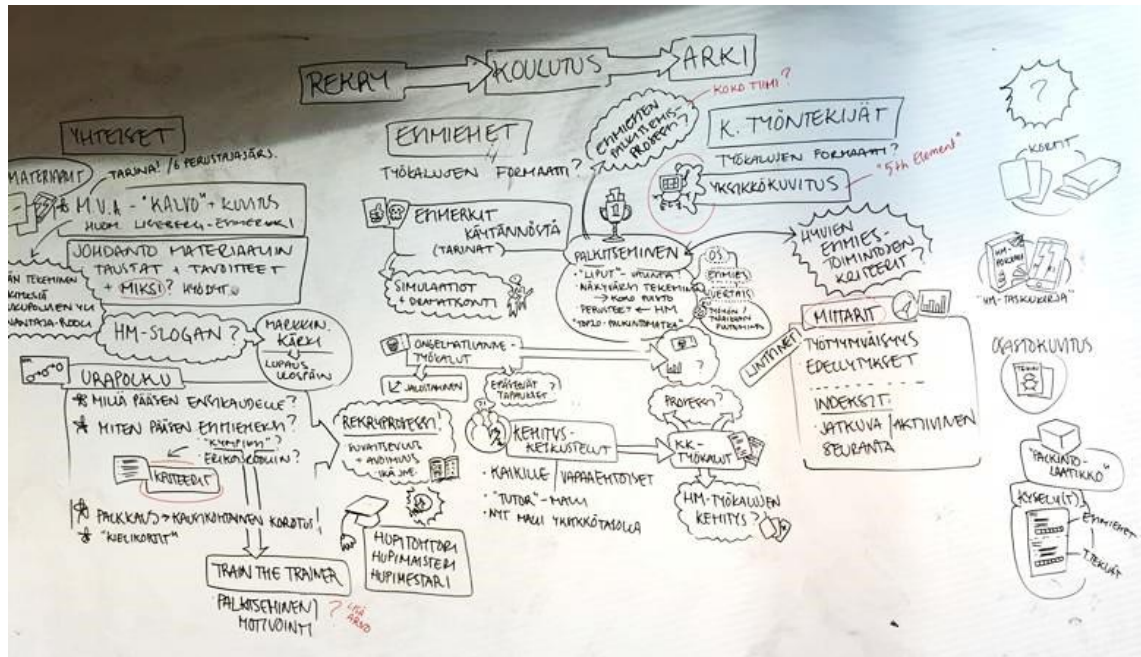 REKRY
KOULUTUS
ARKI
YHTEISET
MATERIAALIT
TARINA! /6 PERUSTAJAJÄRS.
M.V.A - "KALVO" + KUVITUS
HUOM.
JOHDANTO MATERIAALIIN
TAUSTAT + TAVOITTEET
+ MIKSI? HYÖDYT
TEKEMINEN
HM-SLOGAN?
MARKKIN.
KÄRKI
LUPAUS
ULOSPÄIN
URAPOLKU
MILLÄ PÄÄSEN ENSIKAUDELLE?
MITEN PÄÄSEN ESIMIEHEKSI?
ERIKOISROOLIIN?
KRITEERIT
PALKKAUS → KAUSIKOHTAINEN KOROTUS!
"KIELIKORTIT"
TRAIN THE TRAINER
PALKITSEMINEN/
MOTIVOINTI
?
LISÄ
ARVO
ESIMIEHET
TYÖKALUJEN FORMAATTI?
ESIMERKIT
KÄYTÄNNÖSTÄ
(TARINAT)
SIMULAATIOT
+ DRAMATISOINTI
ONGELMATILANNE-
TYÖKALUT
JALOSTAMINEN
EPÄSELVÄT
TAPAUKSET?
REKRYPROSESSI
SUVAITSEVUUS
+ AVOIMUUS
KEHITYS-
KESKUSTELUT
• KAIKILLE / VAPAAEHTOISET
• "TUTOR"-MALLI
• NYT MALLI YKSIKKÖTASOLLA
HUPITOHTORI
HUPIMAISTERI
HUPIMESTARI
ESIMIEHEN
PALKITSEMIS-
PROSESSI?
KOKO TIIMI?
PALKITSEMINEN
• "LIPUT"-
• NÄKYVÄKSI TEKEMINEN
→ KOKO PUISTO
PERUSTEET ← HM
"TOP20-PALKINTOMATKA"
ÖS
ESIMIES
VERTAIS
?
PROSESSI?
KK-
TYÖKALUT
HM-TYÖKALUJEN
KEHITYS?
K. TYÖNTEKIJÄT
TYÖKALUJEN FORMAATTI?
YKSIKKÖKUVITUS
"5th Element"
HYVIEN
ESIMIES-
TOIMINTOJEN
KRITEERIT?
MITTARIT
LINTTINET
TYÖTYYTYVÄISYYS
EDELLYTYKSET
INDEKSIT:
JATKUVA / AKTIIVINEN
SEURANTA
?
KORTIT
HM-
POKKARI
"HM-TASKUKIRJA"
OSASTOKUVITUS
"PALKINTO-
LAATIKKO"
KYSELY(T)
ESIMIEHET
T.TEKIJÄT